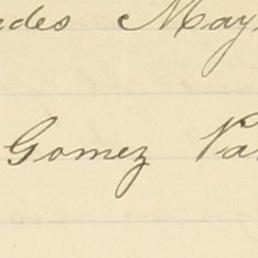 des May
Gomez Va